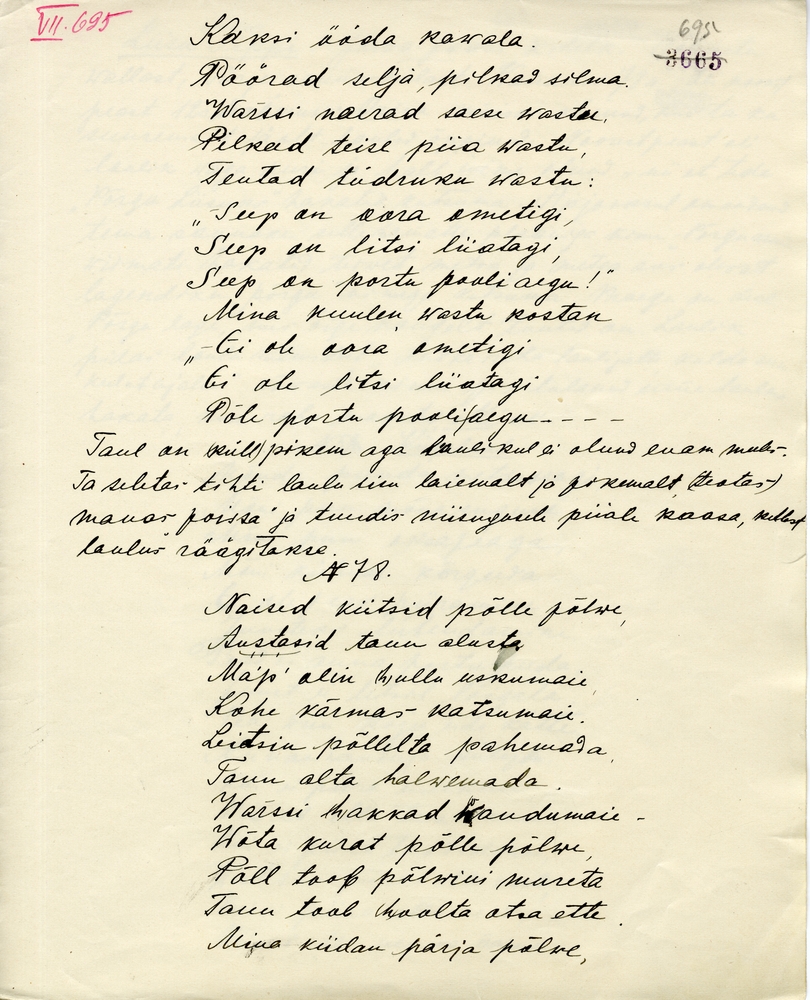 VII. 695
695
3665
Kaksi ööda kawala.
Pöörad selja, pilkad silma.
Warssi naerad saese wastu,
Pilkad teise piia wastu,
Teutad tüdruku wastu:
„Seep on oora ometigi,
Seep on litsi liiatagi,
Seep on portu pooli aegu!"
Mina kuulen, wastu kostan
„Ei ole oora ometigi
Ei ole litsi liiatagi
Põle portu pooli aegu - - - -
Laul on (küll) pikem aga laulikul ei olnud enam meeles.
Ta seletas tihti laulu sisu laiemalt ja pikemalt, (teotas)
manas poissa" ja tundis niisugusele piiale kaasa, kellest
laulus räägitakse.
№ 78.
Naised kiitsid põlle põlwe,
Austasid tanu alusta
Ma'p' olin hullu uskumaie,
Kohe kärmas katsumaie.
Leidsin põllelta pahemada,
Tanu alta halwemada.
Warssi hakkad kandumaie -
Wõta kurat põlle põlwe,
Põll toob põlwini mureta
Tanu toob hoolta otsa ette.
Mina kiidan pärja põlwe,